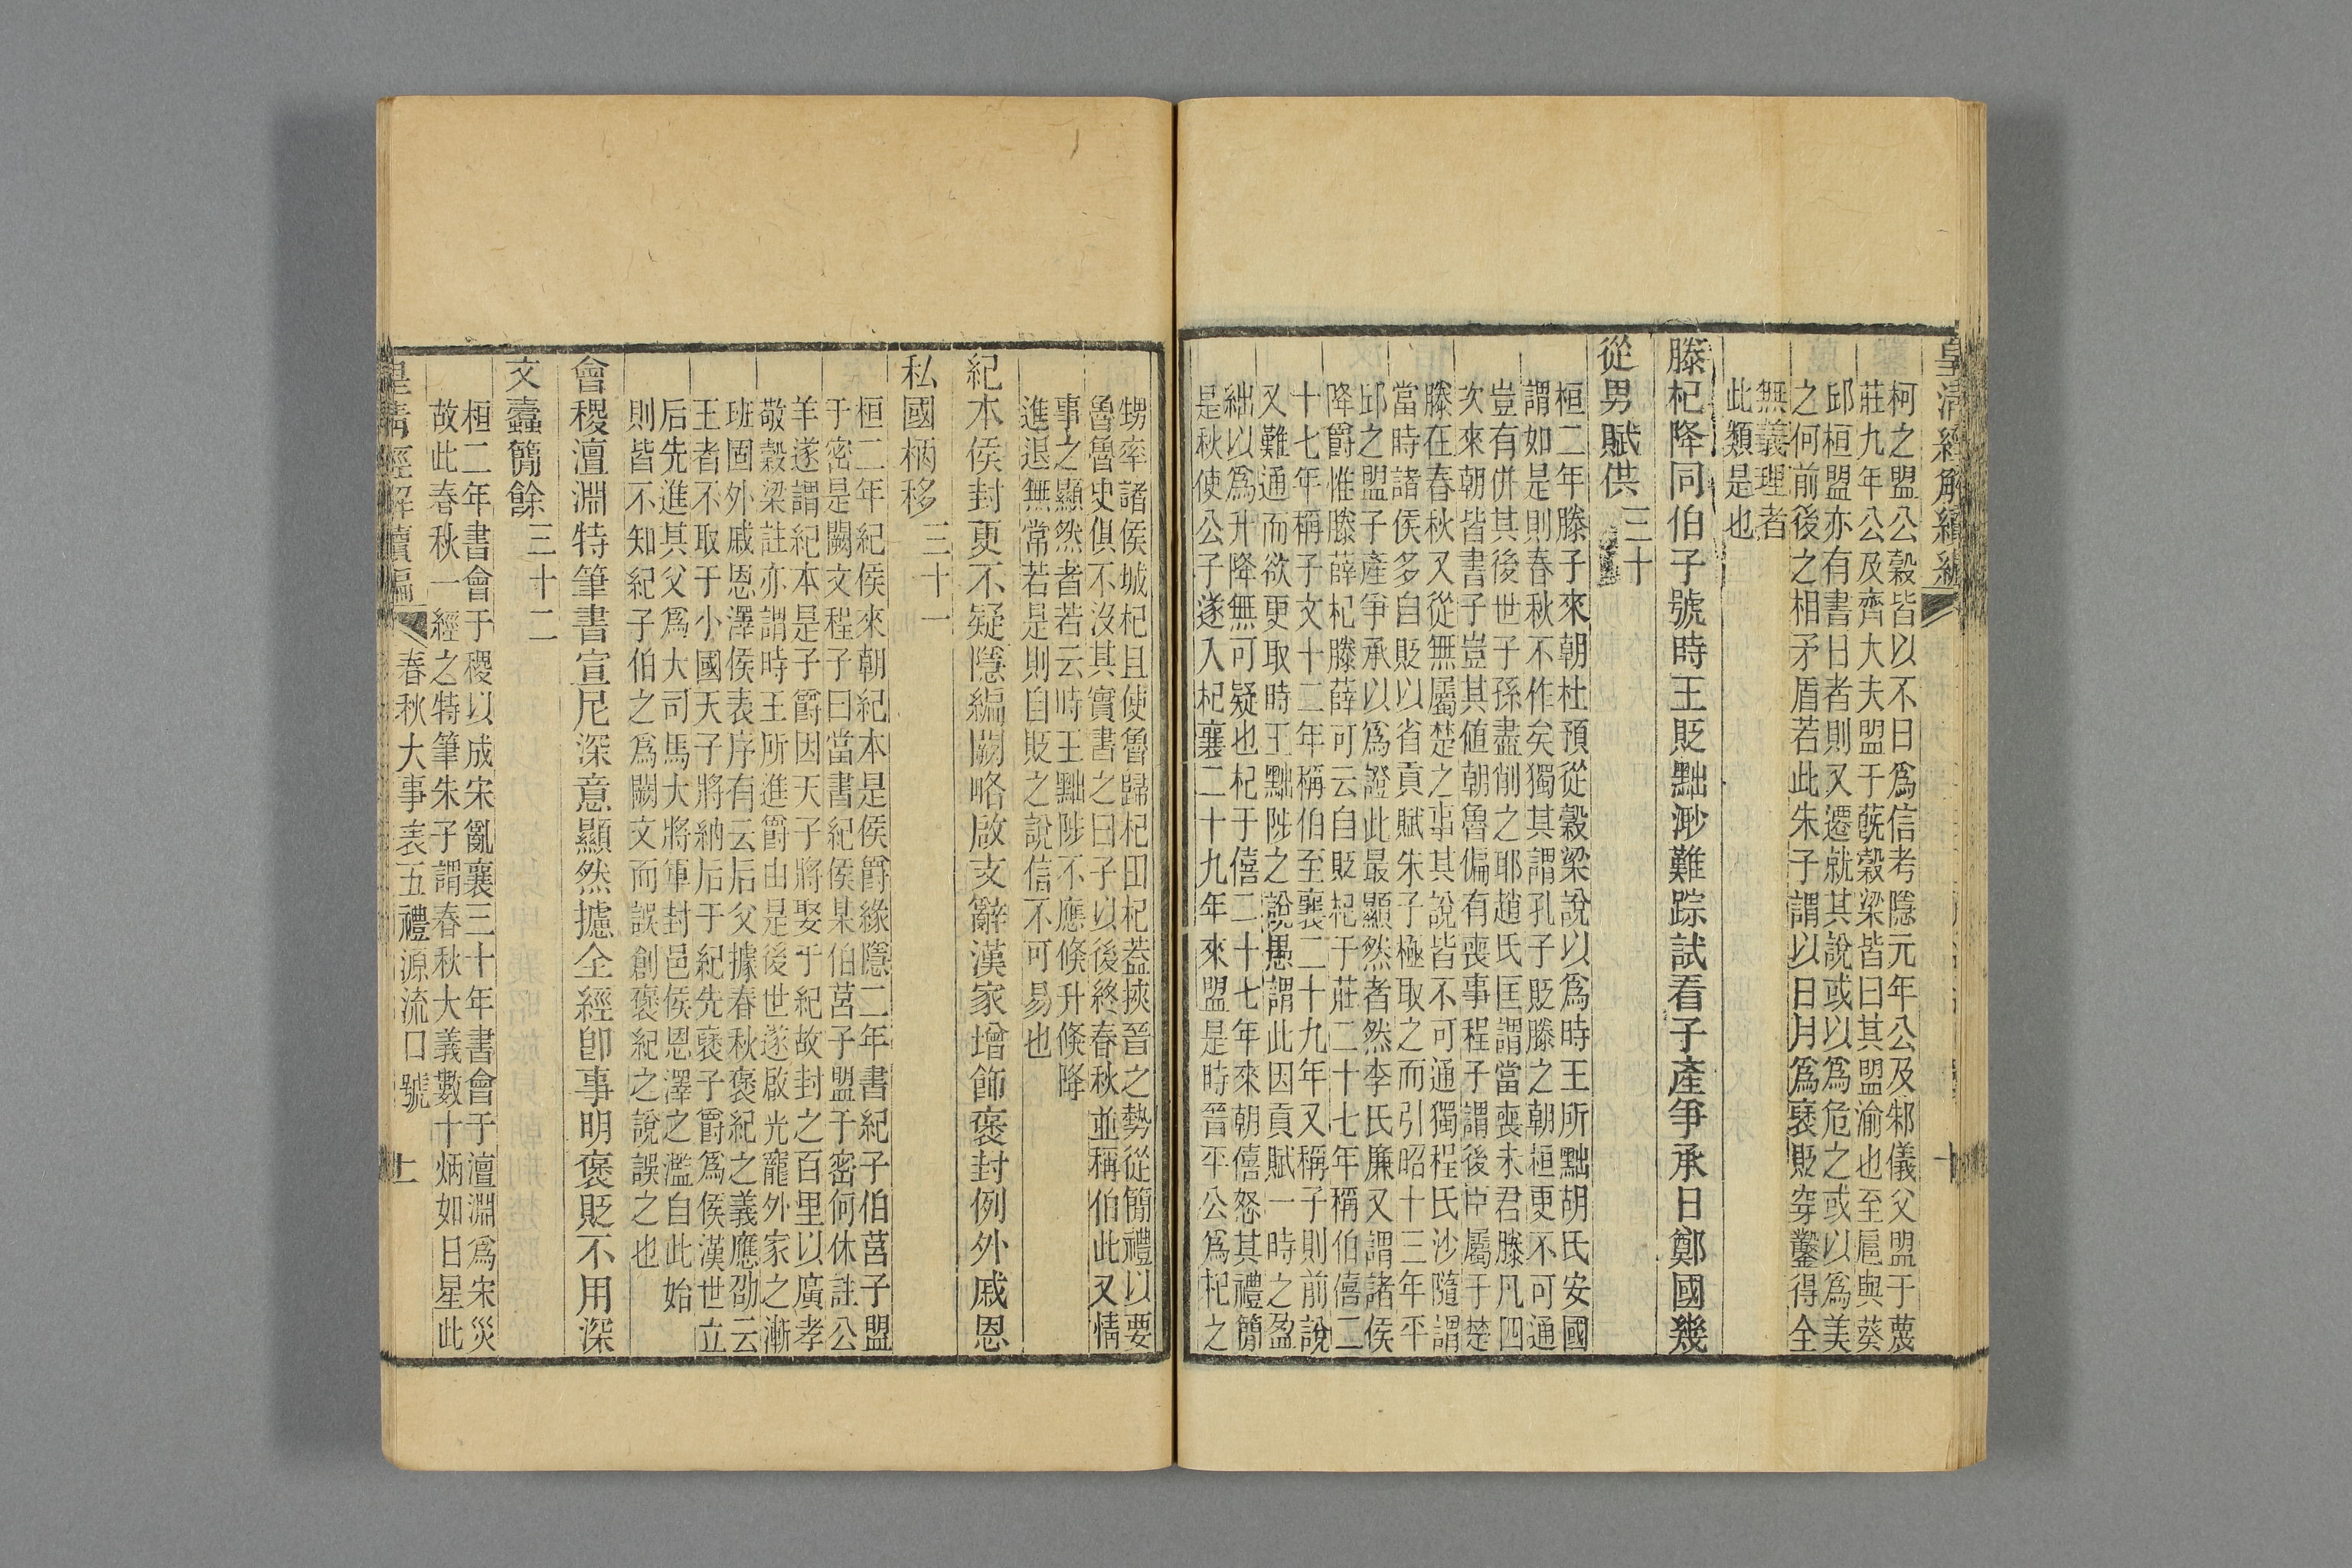 皇清經解續編
柯之盟公穀皆以不日爲信考隱元年公及邾儀父盟于蔑
莊九年公及齊大夫盟于蔇穀梁皆曰其盟渝也至扈與葵
邱桓盟亦有書日者則又遷就其說或以爲危之或以爲美
之何前後之相矛盾若此朱子謂以日月爲襃貶穿鑿得全
無義理者
此類是也
滕杞降同伯子號時王貶黜渺難踪試看子產爭承日鄭國幾
從男賦供三十
桓二年滕子來朝杜預從穀梁說以爲時王所黜胡氏安國
謂如是則春秋不作矣獨其謂孔子貶滕之朝桓更不可通
豈有併其後世子孫盡削之耶趙氏匡謂當喪未君滕凡四
次來朝皆書子豈其値朝魯偏有喪事程子謂後臣屬于楚
滕在春秋又從無屬楚之事其說皆不可通獨程氏沙隨謂
當時諸侯多自貶以省貢賦朱子極取之而引昭十三年平
邱之盟子產爭承以爲證此最顯然者然李氏廉又謂諸侯
降爵惟滕薛杞滕薛可云自貶杞于莊二十七年稱伯僖二
十七年稱子文十二年稱伯至襄二十九年又稱子則前說
又難通而欲更取時王黜陟之說愚謂此因貢賦一時之盈
絀以爲升降無可疑也杞于僖二十七年來朝僖怒其禮簡
是秋使公子遂入杞襄二十九年來盟是時晉平公爲杞之
甥率諸侯城杞且使魯歸杞田杞蓋挾晉之勢從簡禮以要
魯魯史俱不沒其實書之曰子以後終春秋並稱伯此又情
事之顯然者若云時王黜陟不應倏升倏降
進退無常若是則自貶之說信不可易也
紀本侯封更不疑隱編闕略啟支辭漢家增飾褒封例外戚恩
私國柄移三十一
桓二年紀侯來朝紀本是侯爵緣隱二年書紀子伯莒子盟
于密是闕文程子曰當書紀侯某伯莒子盟于密何休註公
羊遂謂紀本是子爵因天子將娶于紀故封之百里以廣孝
敬穀梁註亦謂時王所進爵由是後世遂啟光寵外家之漸
班固外戚恩澤侯表序有云后父據春秋褒紀之義應劭云
王者不取于小國天子將納后于紀先襃子爵爲侯漢世立
后先進其父爲大司馬大將軍封邑侯恩澤之濫自此始
則皆不知紀子伯之爲闕文而誤創褒紀之說誤之也
會稷澶淵特筆書宣尼深意顯然攄全經卽事明褒貶不用深
文蠹簡餘三十二
桓二年書會于稷以成宋亂襄三十年書會于澶淵爲宋災
故此春秋一經之特筆朱子謂春秋大義數十炳如日星此
皇清經解續編 春秋大事表五禮源流口號 十一